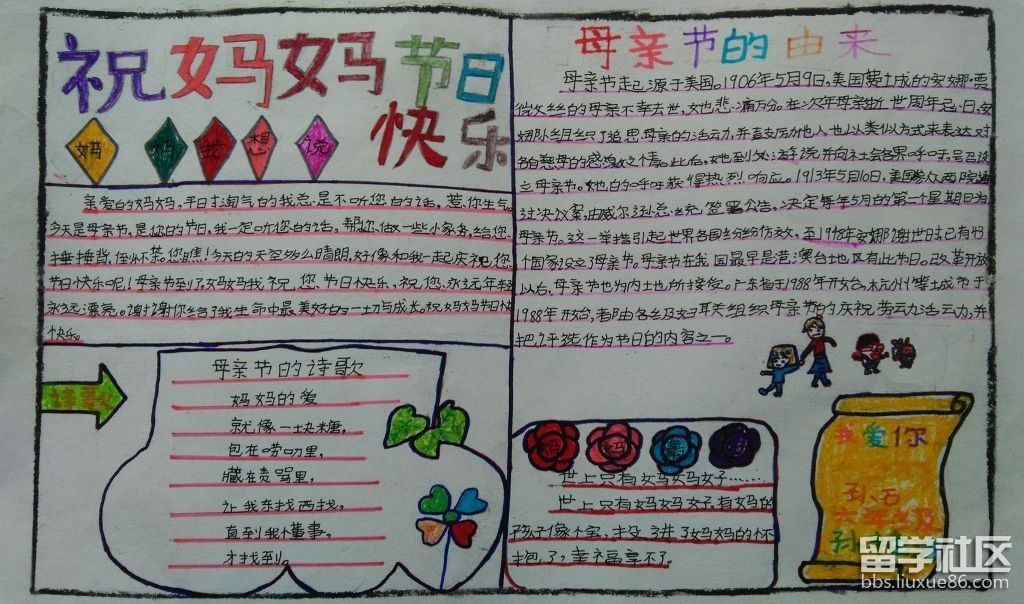 祝妈妈节日
快乐
妈 妈 我 想 说
亲爱的妈妈,平日才淘气的我总是不听您的话。惹你生气。
今天是母亲节,是你的节日,我一定听您的话,帮您做一些小家务,给您
捶捶背,但怀惹您焦!今天的天空多么晴朗,好像和我一起庆祝您
节日快乐呢!母亲节到了,妈妈我祝您,节日快乐。祝您永远年轻
永远漂亮。谢谢你给了我生命中最美好的一切与成长。祝妈妈节日
快乐。
诗歌
母亲节的诗歌
妈妈的爱
就像一块糖,
包在唠叨里,
藏在责骂里,
让我东找西找,
直到我懂事。
才找到。
母亲节的由来
母亲节起源于美国。1906年5月9日,美国费城的安娜·贾
薇丝的母亲不幸去世,她悲痛万分。在次年母亲逝世周年忌日,安
娜组织了追思母亲的活动,并鼓励他人也以类似方式来表达对
各自慈母的感激之情。此后,她到处游说并向社会各界呼吁,号召设
立母亲节。她的呼吁获得热烈响应。1913年5月10日,美国参众两院通
过决议案,由威尔逊总统签署公告,决定每年5月的第一个星期日为
母亲节。这一举措引起世界各国纷纷仿效,至1948年安娜谢世时已有43
个国家设立了母亲节。母亲节在我国最早是港澳台地区有此节日。改革开放
以后,母亲节也为内土地所接受。广东省于1988年开始,杭州等城市于
1988年开始,都由各级妇联组织母亲节的庆祝劳动活动,并
把评选作为节日的内容之一。
世上只有妈妈好……
世上只有妈妈好,有妈的
孩子像个宝,投进了妈妈的怀
抱了,幸福享不了。
我爱你
六年级
留学社区
bbs.liuxue86.com